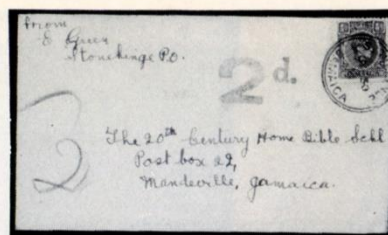 From
E Green
Stonehenge P.O.
2d.
The 20th Century Home Bible Schl
Post box 22,
Mandeville, Jamaica.